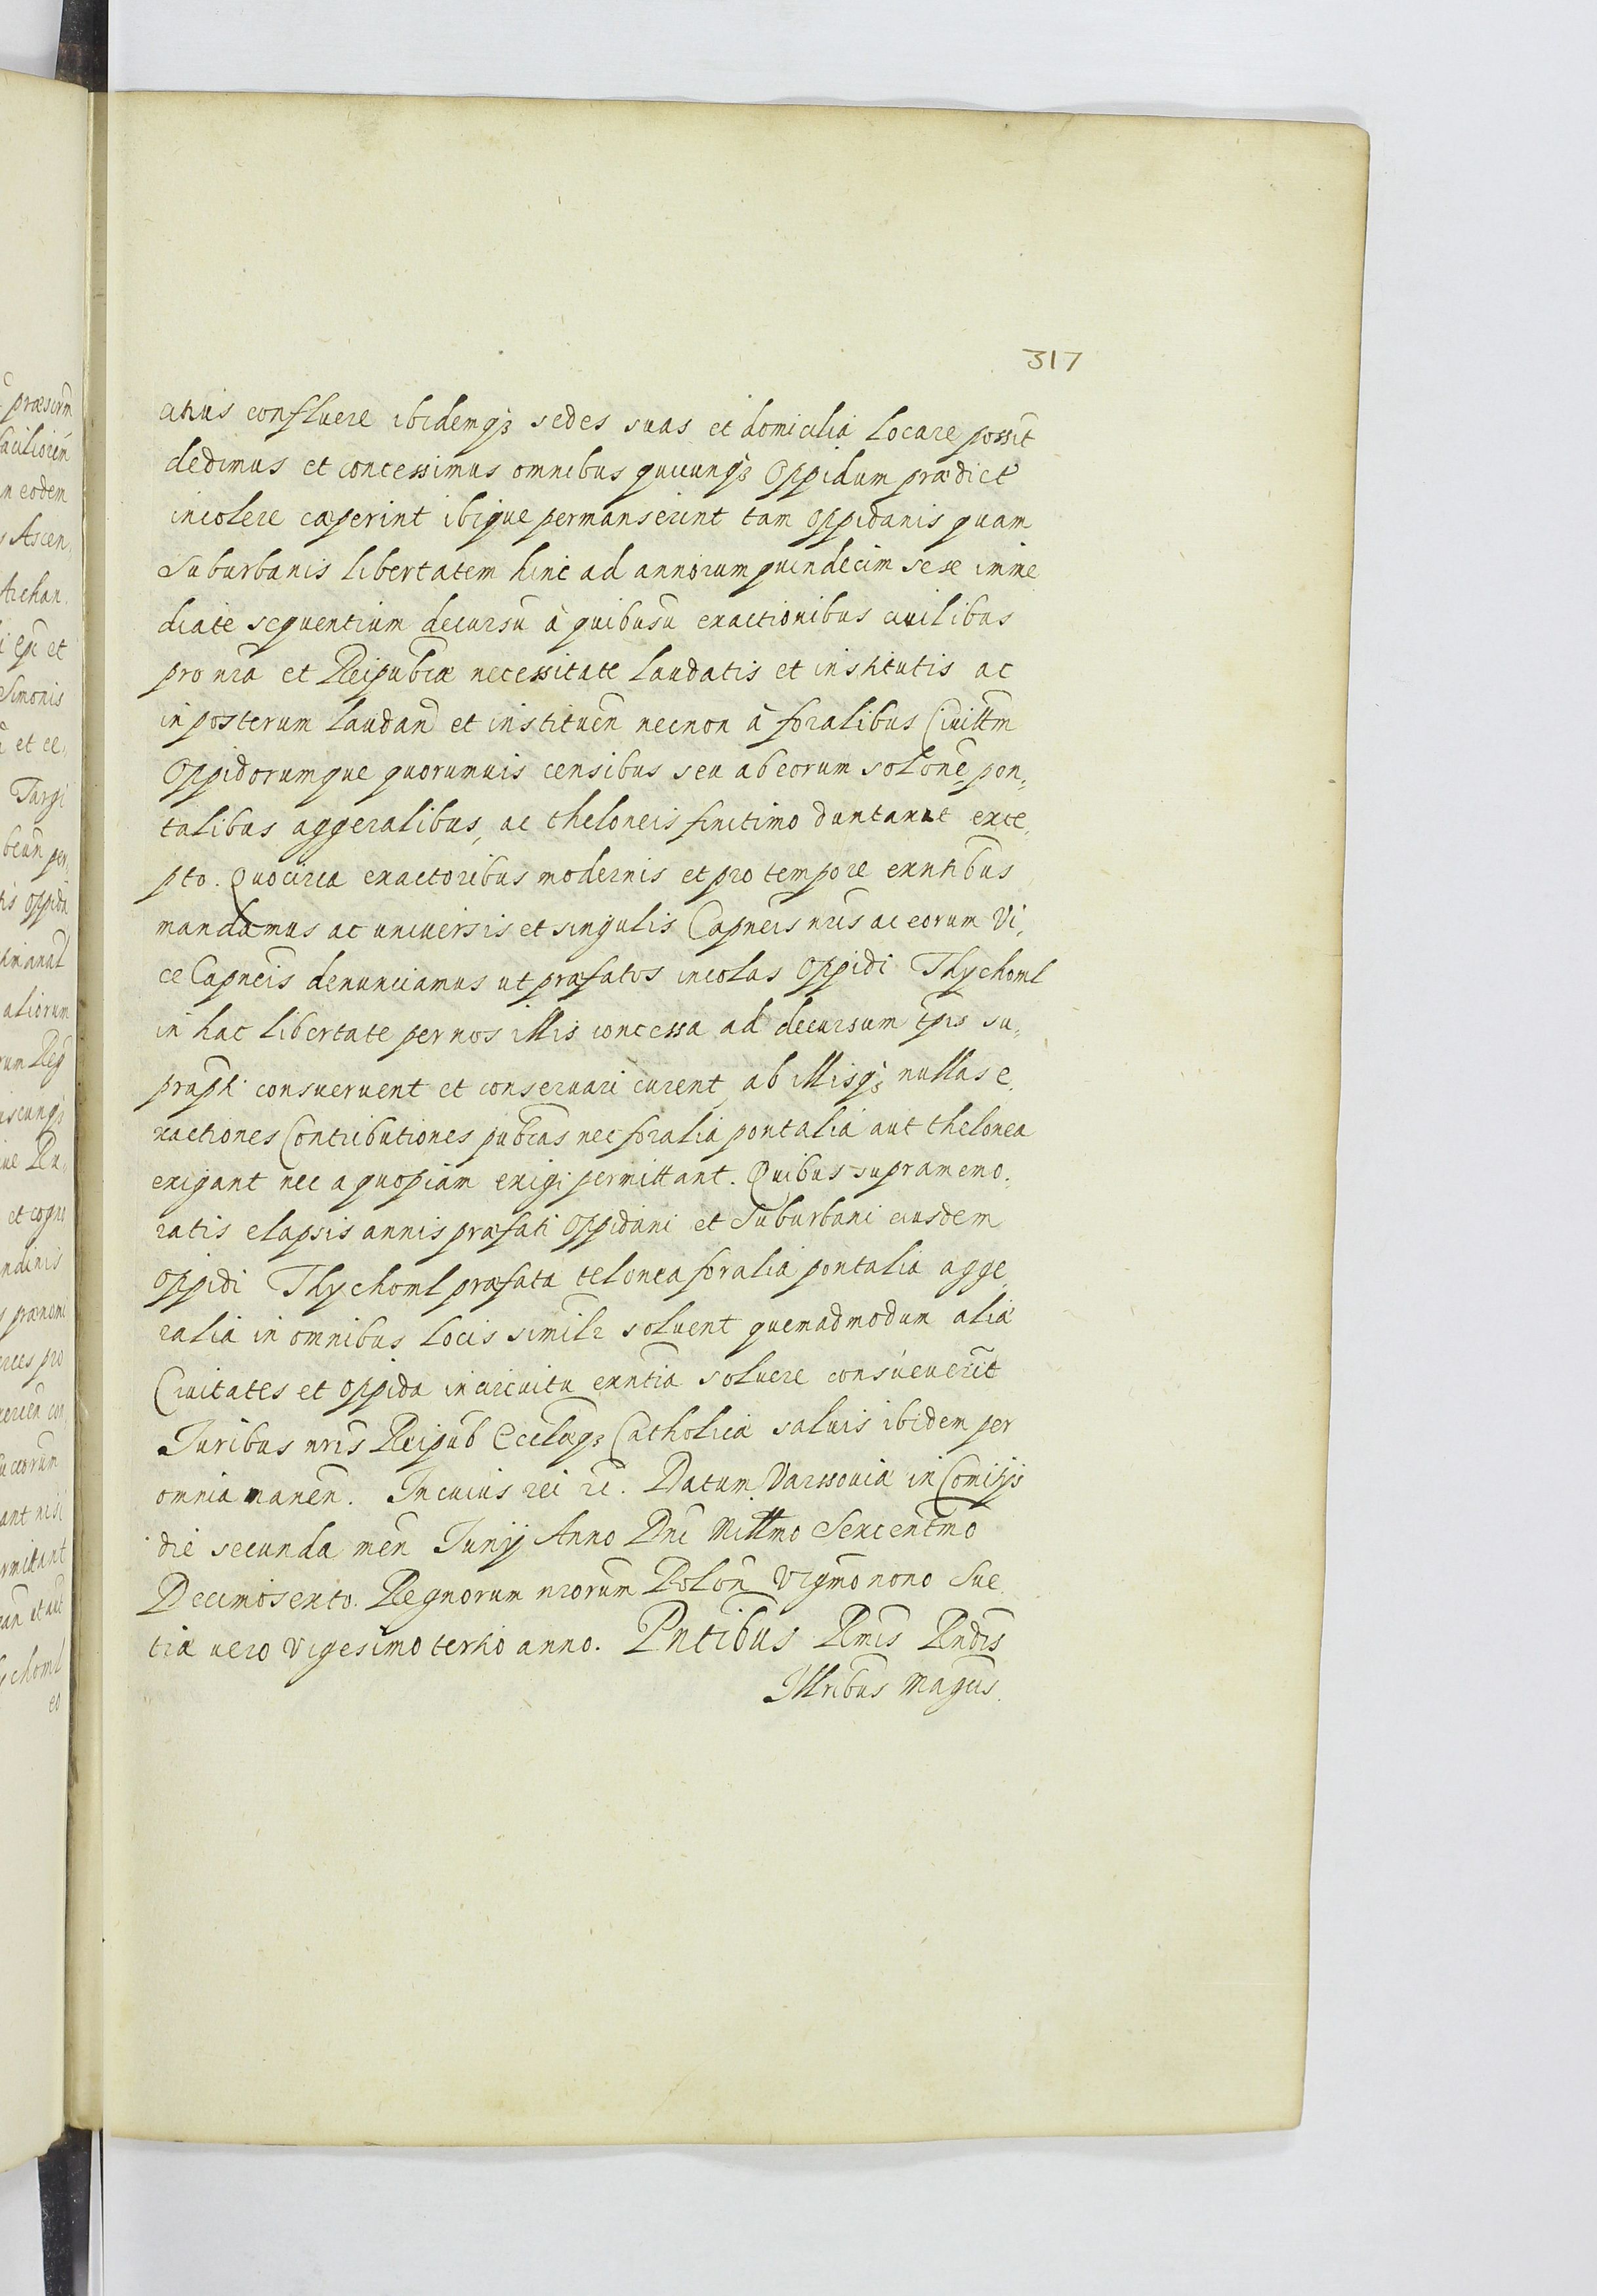 317
atius confluere ibidemqʒ sedes suas et domicilia locare possit
dedimus et concessimus omnibus quicunqʒ Oppidum prædict
incolere cæperint ibique permanserint tam oppidanis quam
Suburbanis libertatem hinc ad annorum quindecim sese imme
diate sequentium decursū à quibusū exactionibus ciuilibus
pro nrã et Reipubcæ necessitate laudatis et institutis ac
in posterum laudand et instituen necnon à foralibus Ciuittm
Oppidorumque quorumuis censibus seu ab eorum solone pon,
talibus aggeralibus, ac theloneis finitimo duntaxat exce,
pto. Quocirca exactoribus modernis et pro tempore exntibus
mandamus ac uniuersis et singulis Capneis nris ac eorum Vi,
ce Capneis denunciamus ut præfatos incolas Oppidi Thychoml
in hac libertate per nos illis concessa ad decursum tpis su,
præpti consueruent et conseruari curent, ab illisqʒ nullas e,
xactiones Contributiones pubcas nec foralia pontalia aut thelonea
exigant nec a quopiam exigi permittant. Quibus supramemo,
ratis elapsis annis præfati Oppidani et Suburbani eiusdem
Oppidi Thychoml præfata telonea foralia pontalia agge,
ralia in omnibus locis similr soluent quemadmodum alia
Ciuitates et oppida in circuitu exntia soluere consueuerit
Juribus nris Reipub Ecclæqʒ Catholicæ saluis ibidem per
omnia manen. In cuius rei rc. Datum Varssouiæ in Comitijs
die secunda men Junij Anno Dni Millmo Sexcentmo
Decimosexto. Regnorum nrorum Polon Vigmo nono Sue
tiæ uero Vigesimo tertio anno. Pntibus Rmis Rndis
Illribus Magcis